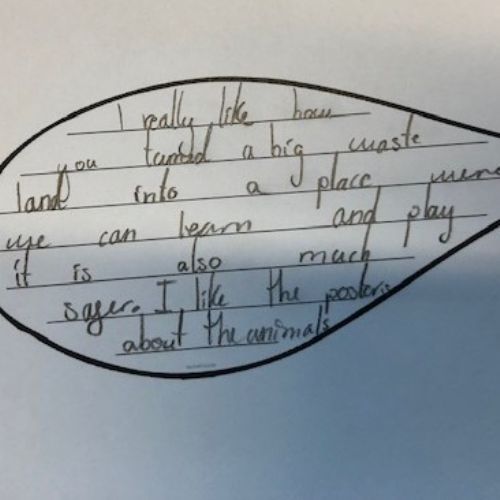 I really like how
you turned a big waste
land into a place were
we can learn and play
it is also much
safer. I like the posters
about the animals